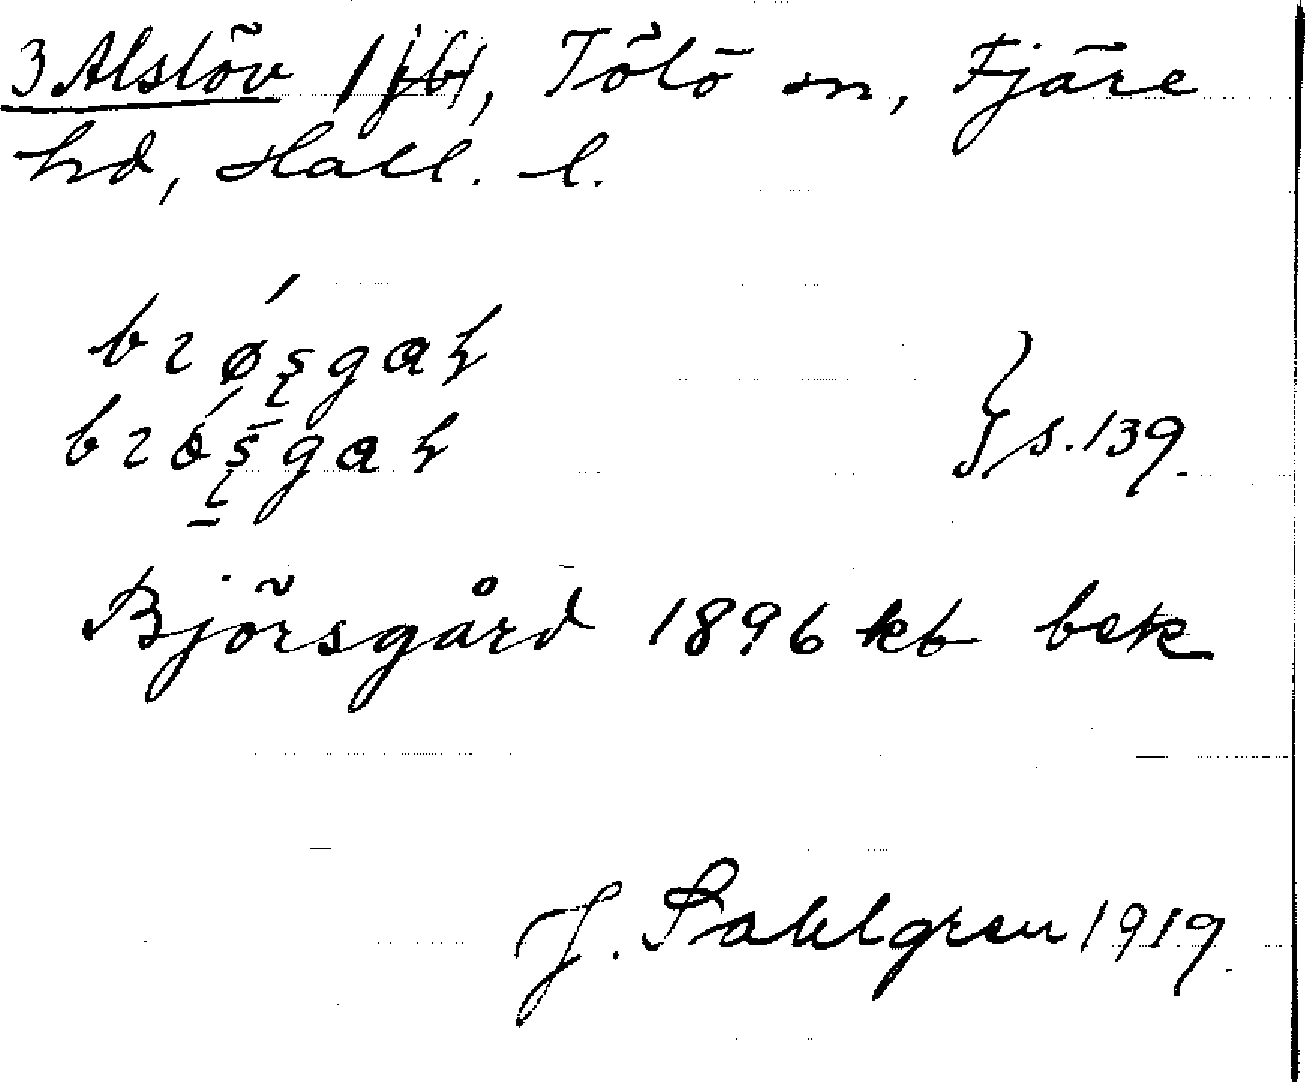 3 Alslöv 1, Tölö sn, Fjäre
hd, Hall. l.
s. 139.
Björsgård 1896 kb bek
J. Sahlgren 1919.